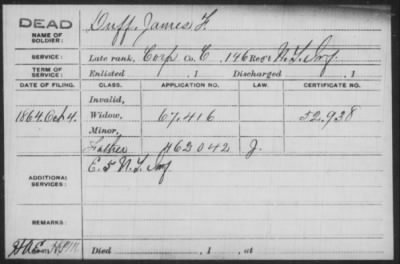 DEAD
NAME OF SOLDIER: Duff, James F.
SERVICE: Late rank, Corp Co. C, 146 Reg't N.Y. Inf.
TERM OF SERVICE: Enlisted , 1 Discharged , 1
DATE OF FILING. CLASS. APPLICATION NO. LAW. CERTIFICATE NO.
Invalid,
1864 Oct 4. Widow, 67.416 52.938
Minor,
Father 462042 J.
ADDITIONAL SERVICES: E. 5 N.Y. Inf
REMARKS:
Died , 1 , at